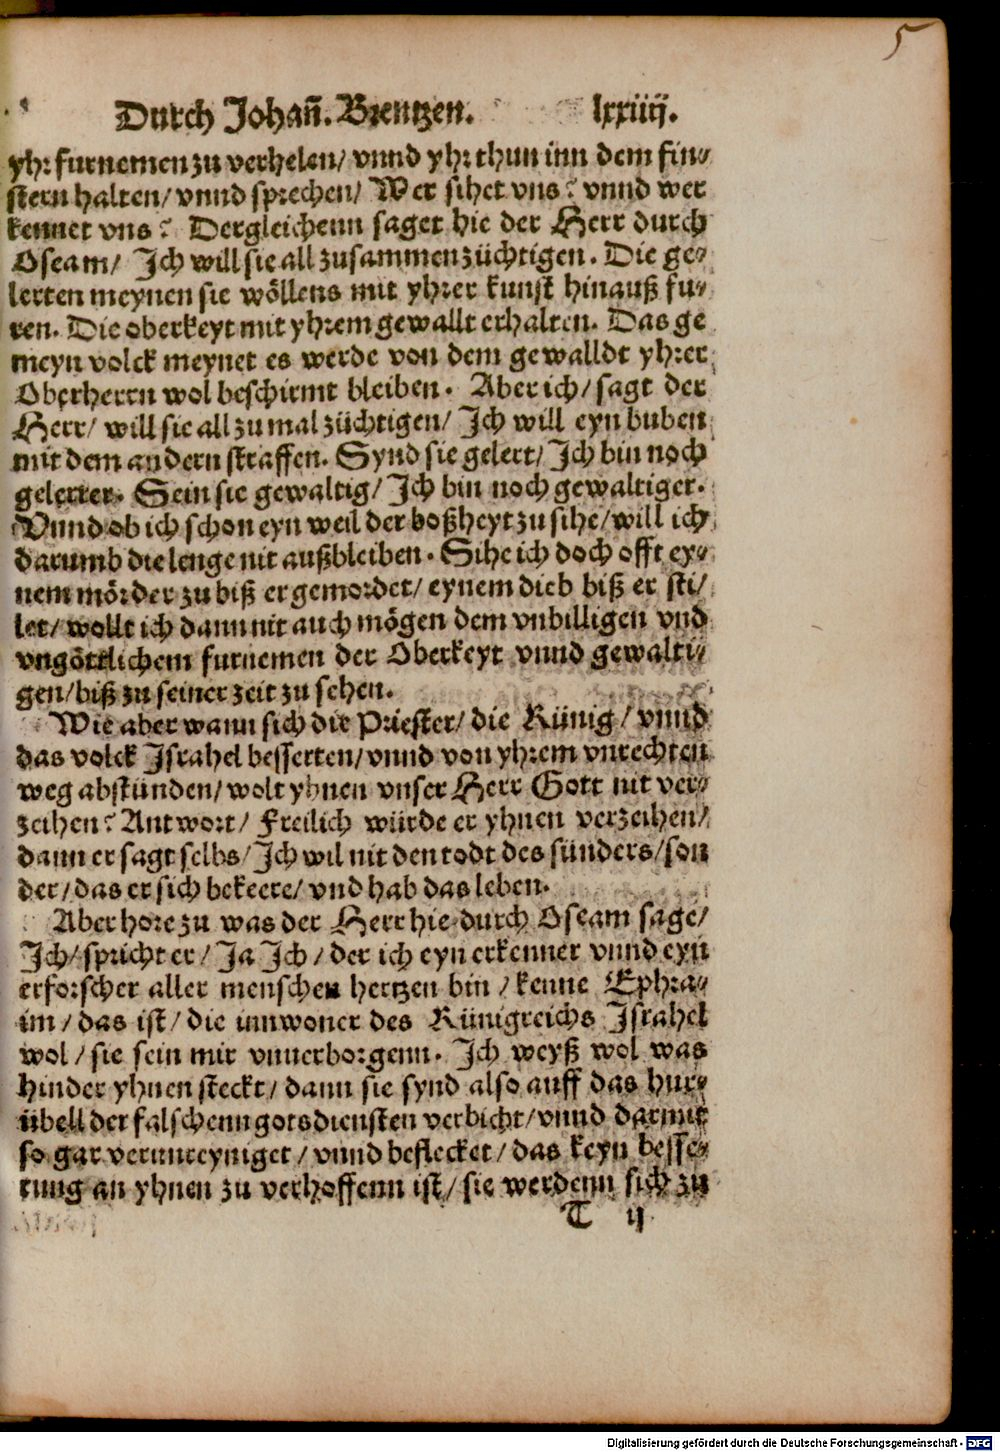 5
Durch Johañ. Brentzen. lxxiiij.
yhr furnemen zu verhelen/ vnnd yhr thun inn dem fin⸗
stern halten/ vnnd sprechen/ Wer sihet vns? vnnd wer
kennet vns? Dergleichenn saget hie der Herr durch
Oseam/ Ich will sie all zusammen züchtigen. Die ge⸗
lerten meynen sie wöllens mit yhrer kunst hinauß fu⸗
ren. Die oberkeyt mit yhrem gewallt erhalten. Das ge
meyn volck meynet es werde von dem gewalldt yhrer
Oberherrn wol beschirmt bleiben. Aber ich/ sagt der
Herr/ will sie all zu mal züchtigen/ Ich will eyn buben
mit dem andern straffen. Synd sie gelert/ Ich bin noch
gelerter. Sein sie gewaltig/ Ich bin noch gewaltiger.
Vnnd ob ich schon eyn weil der boßheyt zu sihe/ will ich
darumb die lenge nit außbleiben. Sihe ich doch offt ey⸗
nem mörder zu biß er gemordet/ eynem dieb biß er sti/
let/ wollt ich dann nit auch mögen dem vnbilligen vnd
vngöttlichem furnemen der Oberkeyt vnnd gewalti⸗
gen/ biß zu seiner zeit zu sehen.
Wie aber wann sich die Priester/ die Künig/ vnnd
das volck Israhel besserten/ vnnd von yhrem vnrechten
weg abstünden/ wolt yhnen vnser Herr Gott nit ver⸗
zeihen? Antwort/ Freilich würde er yhnen verzeihen/
dann er sagt selbs/ Ich wil nit den todt des sünders/ son
der/ das er sich bekeere/ vnd hab das leben.
Aber hore zu was der Herr hie durch Oseam sage/
Ich/ spricht er/ Ja Ich/ der ich eyn erkenner vnnd eyn
erforscher aller menschen hertzen bin/ kenne Ephra⸗
im/ das ist/ die innwoner des Künigreichs Israhel
wol/ sie sein mir vnuerborgenn. Ich weyß wol was
hinder yhnen steckt/ dann sie synd also auff das hur⸗
übell der falschenn gotsdiensten verbicht/ vnnd darmit
so gar verunreyniget/ vnnd beflecket/ das keyn besse⸗
rung an yhnen zu verhoffenn ist/ sie werdenn sich zu
T ij
Digitalisierung gefördert durch die Deutsche Forschungsgemeinschaft - DFG